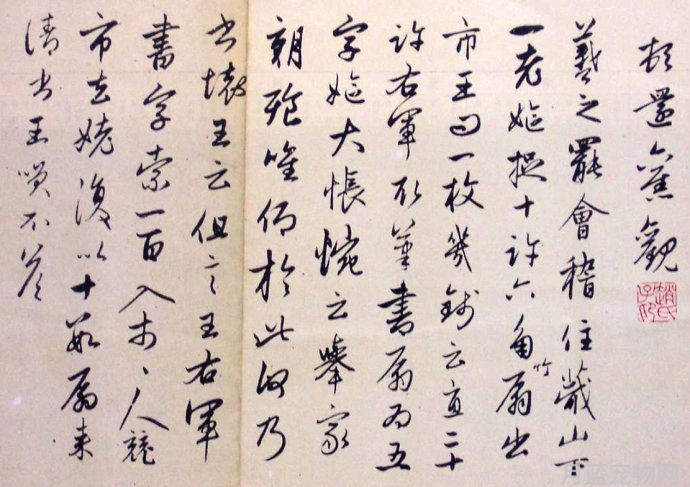 頓還舊觀
羲之罷會稽住蕺山下
一老嫗捉十許六角竹扇出
市王問一枚幾錢云直二十
許右軍取筆書扇為五
字嫗大悵惋云舉家
朝飧唯仰於此何乃
書壞王云但言王右軍
書字索一百入市〻人競
市去姥復以十數扇來
請書王笑不答
趙氏子昂